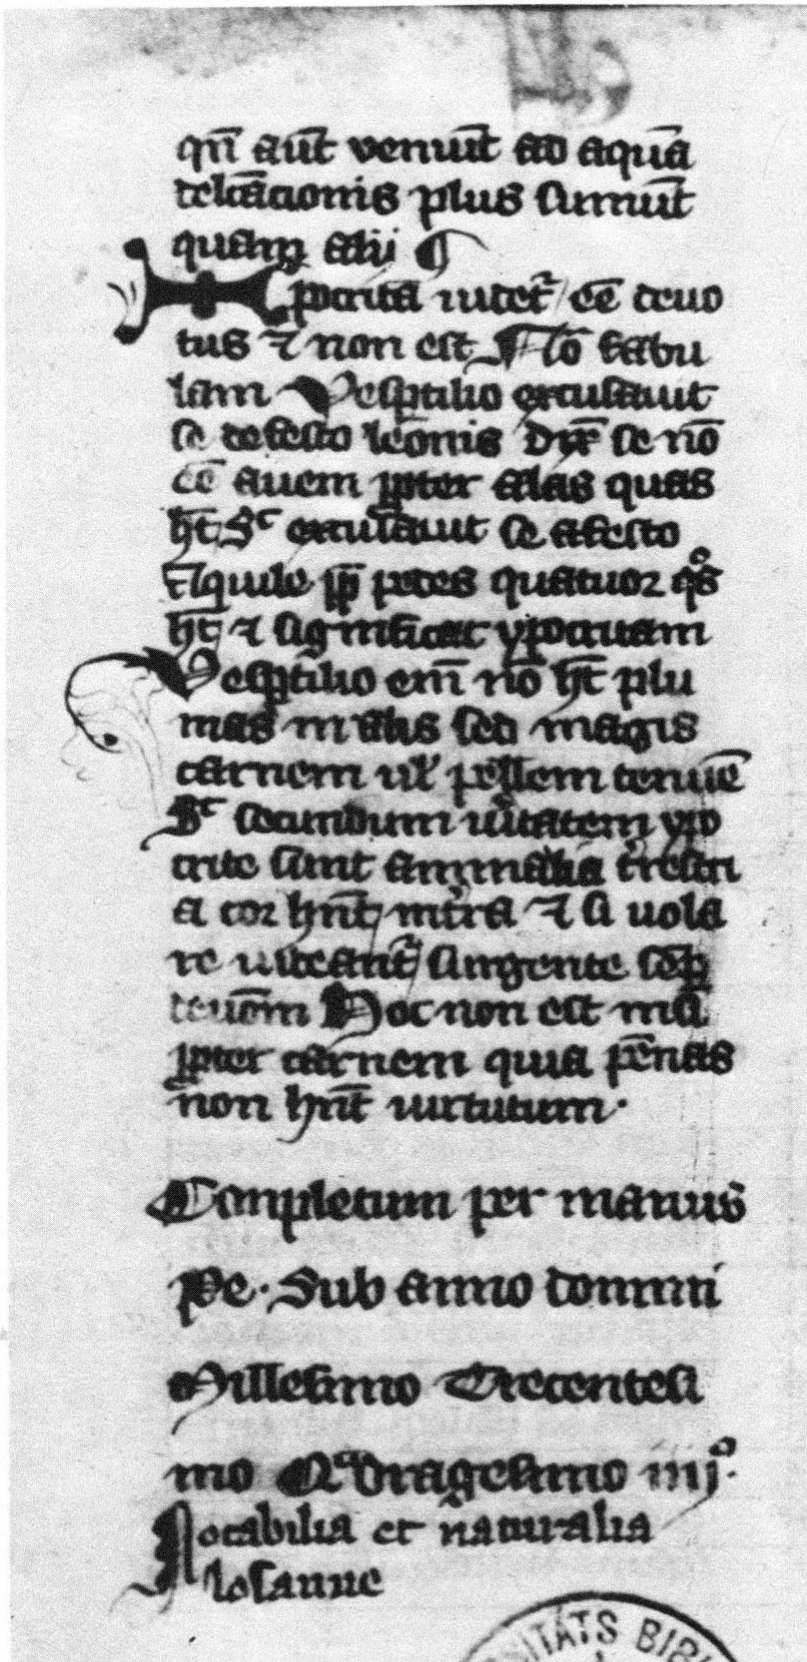 qn̄ aūt venuīt ad aquā
delcāacionis plus sumūt
quam alii ¶
Ipocrita uidet᷑ eē deuo
tus ⁊ non est No͞ fabu
lam Vesptilio excusauit
se defesto leōnis Dix̄ se nō
eē auem ꝓpter alas quas
hꝫ Sᶜ excusauit se afesto
Aquile ꝓp̄ pedes quatuor qͦs
hꝫ ⁊ significat ypocritam
Vesptilio em̄ nō hꝫ plu
mas in alis sed magis
carnem ul̄ pellem tenuē
Sᶜ secundum uitatem ypo
crite sunt animalia t̄restri
a cor hn̄t ⁊ si uola
re uideant᷑ se semꝑ
deuōm Hoc non est nisi
ꝓpter carnem quia pēnas
non hn̄t uirtutum·
Conpletum per manus
pe· Sub anno domini
Millesimo Trecentesi
mo Qᵃdragesimo iiijͦ·
Notabilia et naturalia
losanne
SITÄTS BIB